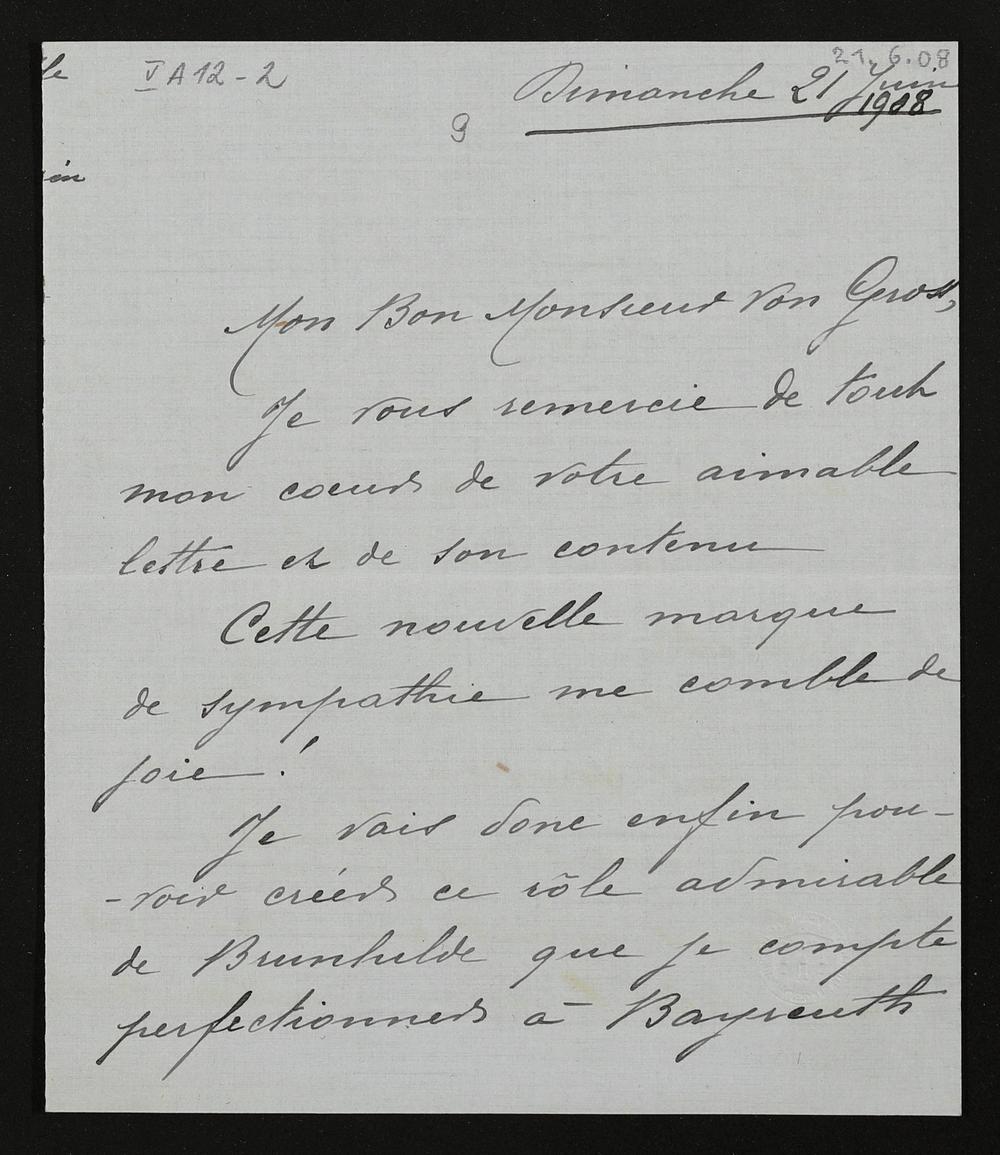 le
V A 12 - 2
21. 6. 08
Dimanche 21 Juin
1908
9
in
Mon Bon Monsieur von Gross,
Je vous remercie de tout
mon coeur de votre aimable
lettre et de son contenu
Cette nouvelle marque
de sympathie me comble de
joie !
Je vais donc enfin pou-
-voir créer ce rôle admirable
de Brunhilde que je compte
perfectionner à Bayreuth